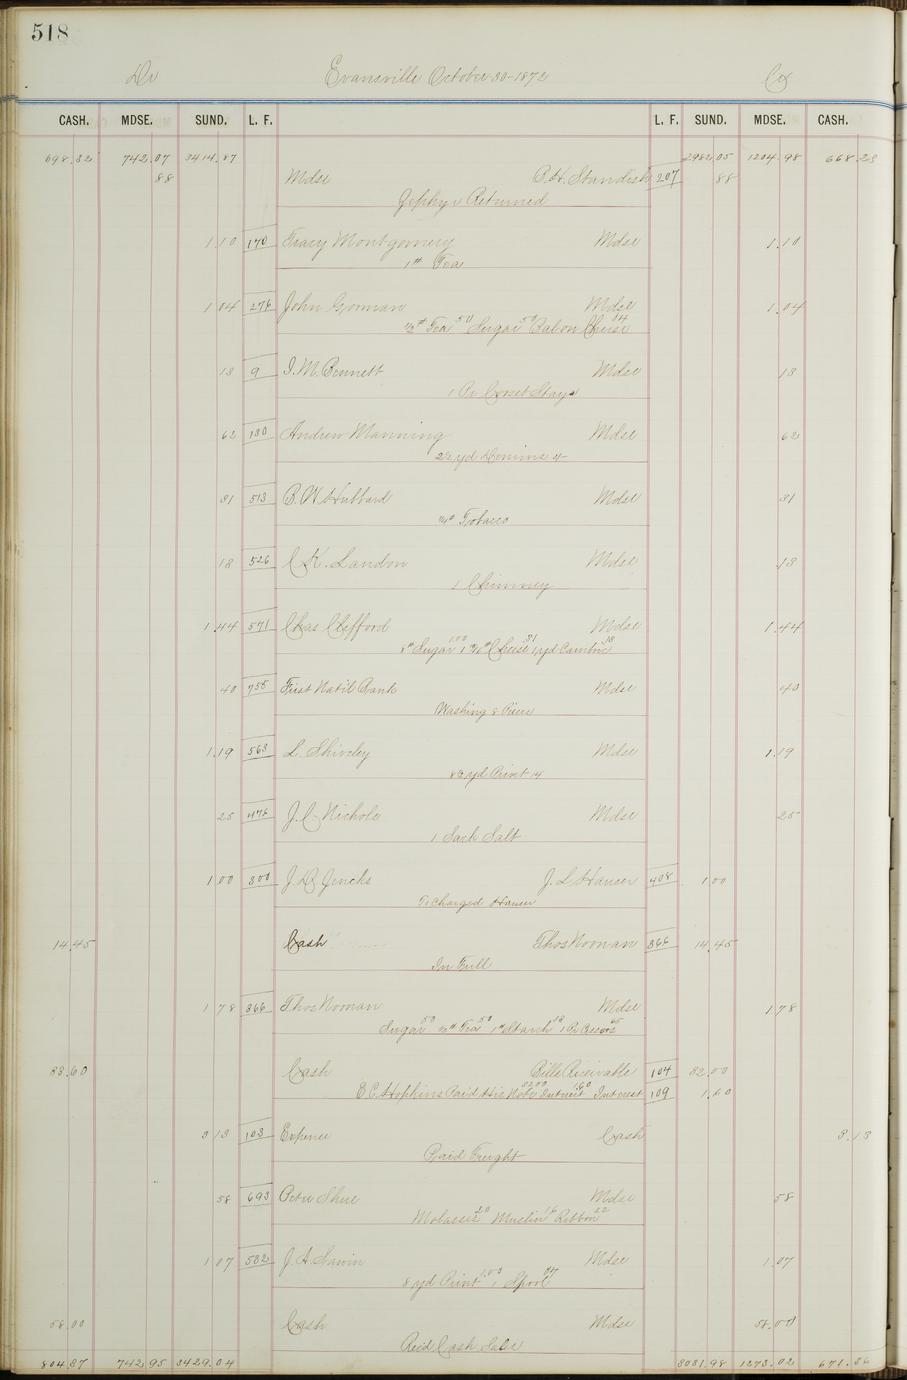 518
Dr Evansville October 30-1872 Cr
CASH. MDSE. SUND. L. F. L. F. SUND. MDSE. CASH.
698.82 742.07 3414.87 2982.05 1204.98 668.23
88 Mdse B.H. Standish 207 88
Zephyr Returned
1.10 170 Tracy Montgomery Mdse 1.10
1# Tea
1 04 276 John Gorman Mdse 1.04
½# Tea 50 Sugar 50 Cheese 04
18 9 I.M. Bennett Mdse 18
1 Pr Corset Stays
62 180 Andrew Manning Mdse 62
2½ yd Denims
31 513 B.W. Hubbard Mdse 31
Tobacco
18 526 C K. Landon Mdse 18
1 Chimney
1.44 571 Chas Clifford Mdse 1.44
Sugar 1.00 Cheese 31 1 yd Cambric 13
40 755 First Nat'l Bank Mdse 40
Washing 8 Pieces
1.19 563 L. Shiveley Mdse 1.19
8½ yd Print 14
25 476 J.C. Nichols Mdse 25
1 Sack Salt
1 00 300 J.D. Jencks J. L. Hauser 408 1.00
Charged Hauser
14.45 Cash Thos Noonan 366 14.45
In Full
1 78 366 Thos Noonan Mdse 1.78
Sugar 50 ½# Tea 50 1# Starch 13 1 Pr 65
83.60 Cash Bills Receivable 104 82.00
E.C. Hopkins Paid His Note 82.00 Interest 1.60 Interest 109 1.60
3 13 103 Expense Cash 3.13
Paid Freight
58 693 Peter Shue Mdse 58
Molasses 20 Muslin 16 Ribbon 22
1 07 532 J. A. Sawin Mdse 1.07
8 yd Print 1.00 1 Spool 07
58.00 Cash Mdse 58.00
Recd Cash Sales
804.87 742.95 3429.04 3081.98 1273.02 671.36